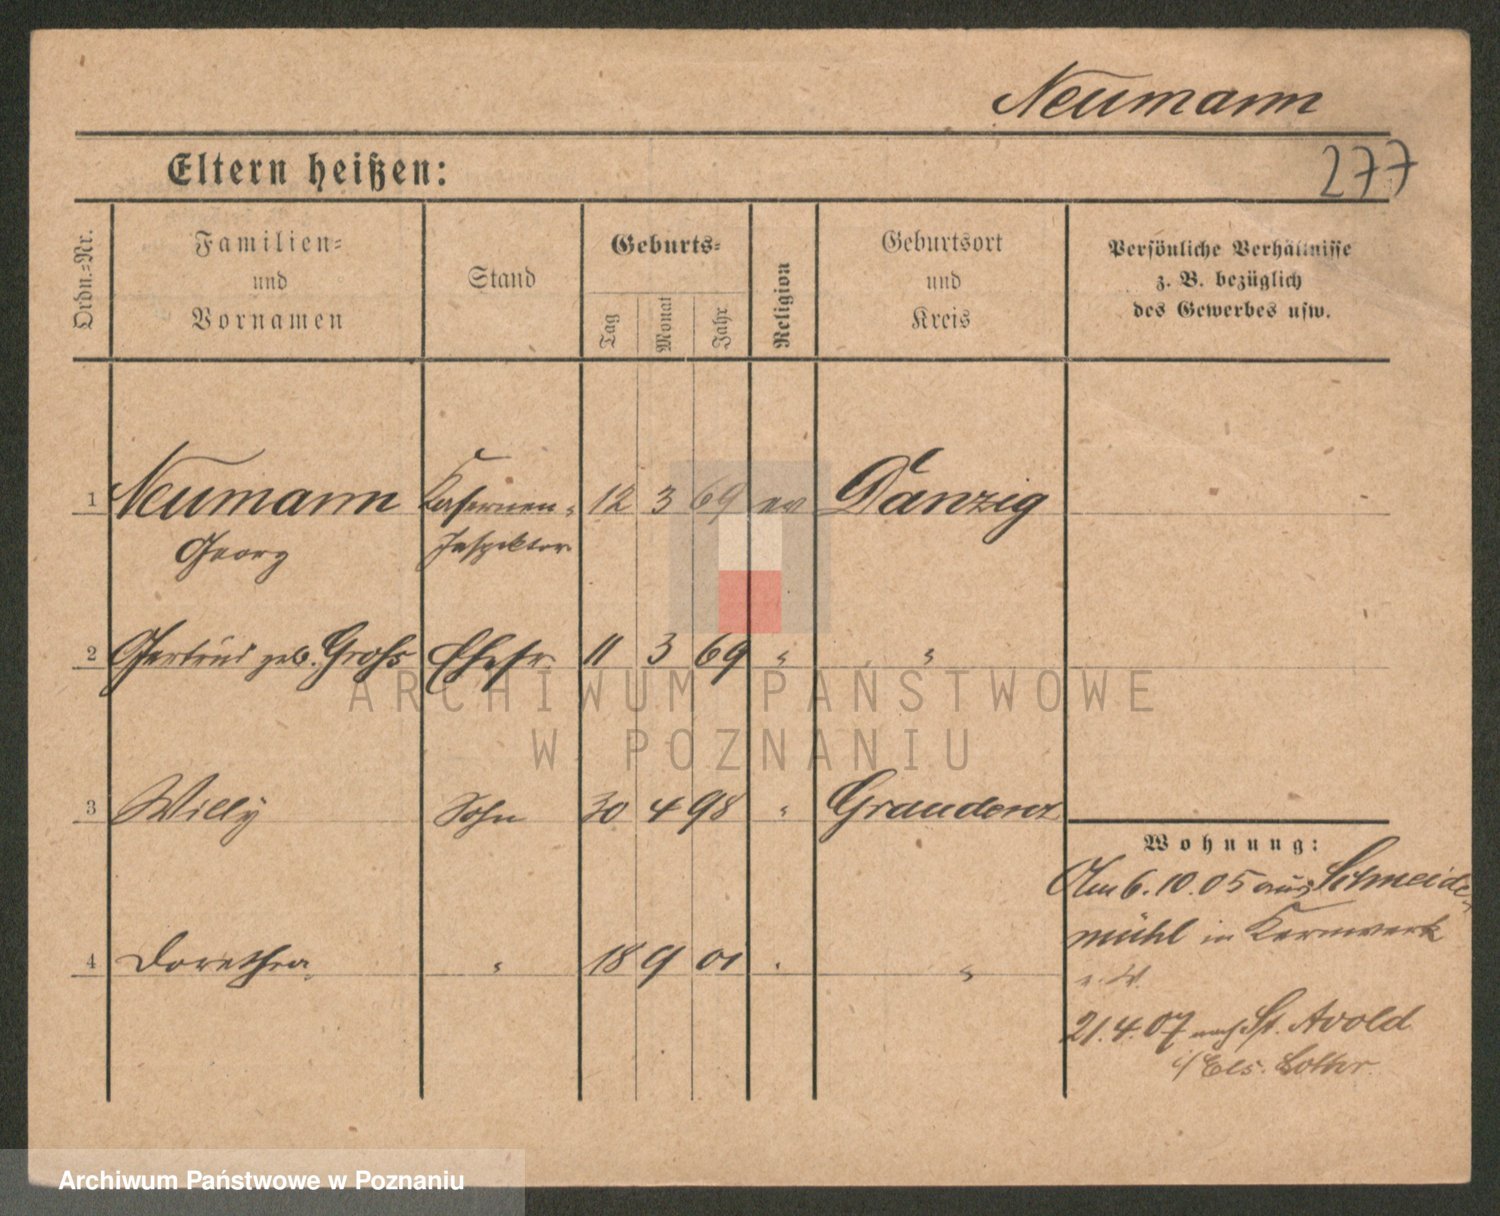 Neumann
277
Eltern heißen:
Ordn.=Nr.
Familien=
und
Vornamen
Stand
Geburts=
Tag
Monat
Jahr
Religion
Geburtsort
und
Kreis
Persönliche Verhältnisse
z. B. bezüglich
des Gewerbes usw.
1 Neumann Kasernen- 12 3 69 ev Danzig
Georg Inspektor
2 Gertrud geb. Groß Ehefr. 11 3 69 " "
ARCHIWUM PAŃSTWOWE
W POZNANIU
3 Willy Sohn 30 4 98 " Graudenz
Wohnung:
Am 6.10.05 aus Schneide-
mühl in Kernwerk
4 Dorethea " 18 9 01 " "
21.4.07 nach St. Avold
i/Els. Lothr.
Archiwum Państwowe w Poznaniu